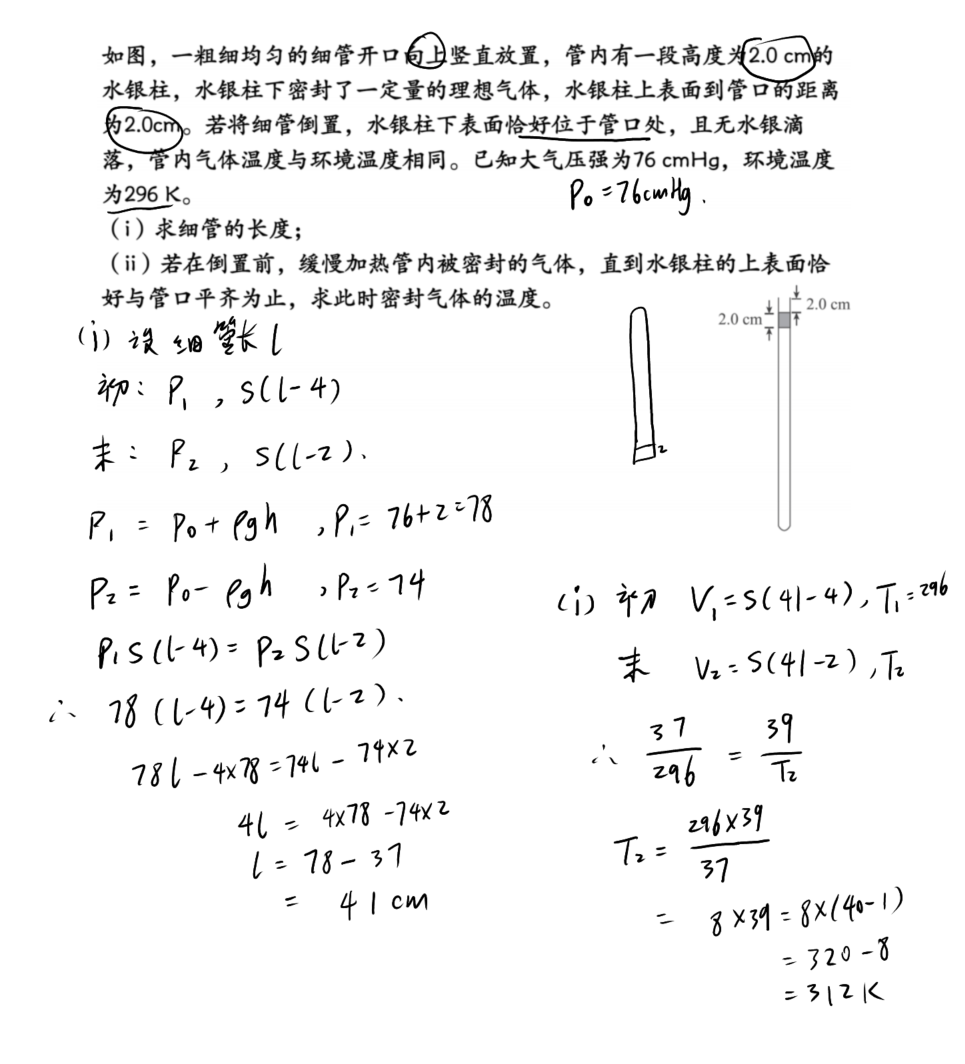 如图，一粗细均匀的细管开口向上竖直放置，管内有一段高度为2.0 cm的
水银柱，水银柱下密封了一定量的理想气体，水银柱上表面到管口的距离
为2.0cm。若将细管倒置，水银柱下表面恰好位于管口处，且无水银滴
落，管内气体温度与环境温度相同。已知大气压强为76 cmHg，环境温度
为296 K。
P₀=76cmHg.
（i）求细管的长度；
（ii）若在倒置前，缓慢加热管内被密封的气体，直到水银柱的上表面恰
好与管口平齐为止，求此时密封气体的温度。
2.0 cm
2.0 cm
2
(i) 设细管长l
初: P₁, S(l-4)
末: P₂, S(l-2).
P₁ = P₀+ρgh , P₁= 76+2=78
P₂= P₀-ρgh , P₂=74
P₁S(l-4)= P₂S(l-2)
∴ 78(l-4)=74(l-2).
78l-4×78=74l-74×2
4l = 4×78-74×2
l = 78-37
= 41cm
(i) 初 V₁=S(41-4), T₁=296
末 V₂=S(41-2), T₂
∴ 37/296 = 39/T₂
T₂= 296×39/37
= 8×39=8×(40-1)
=320-8
=312K